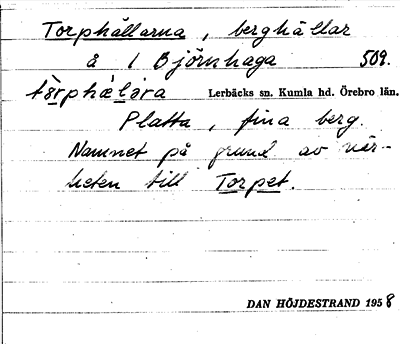 Torphällarna, berghällar
å 1 Björnhaga 509.
tòrphä́lạra Lerbäcks sn. Kumla hd. Örebro län.
Platta, fina berg.
Namnet på grund av när-
heten till Torpet.
DAN HÖJDESTRAND 1958